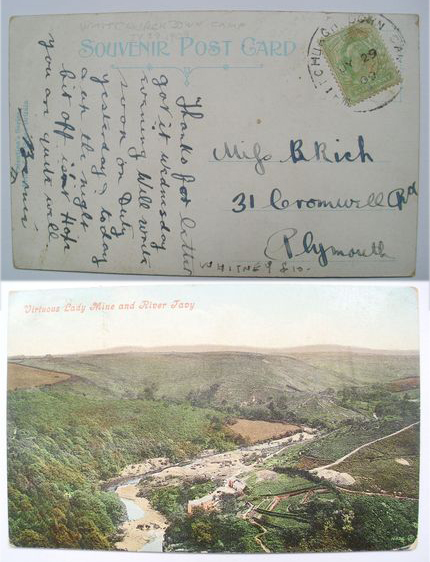 WHITCHURCH DOWN CAMP
SOUVENIR POST CARD
Thanks for letter
got it wednesday
evening Will write
soon on Duty
yesterday & today
all the night
bit off is at Hope
you are quite well
Bernie
Miss B Rich
31 Cromwell Rd
Plymouth
WHITNEY £10.
WHITCHURCH DOWN CAMP
29
09
Virtuous Lady Mine and River Tavy